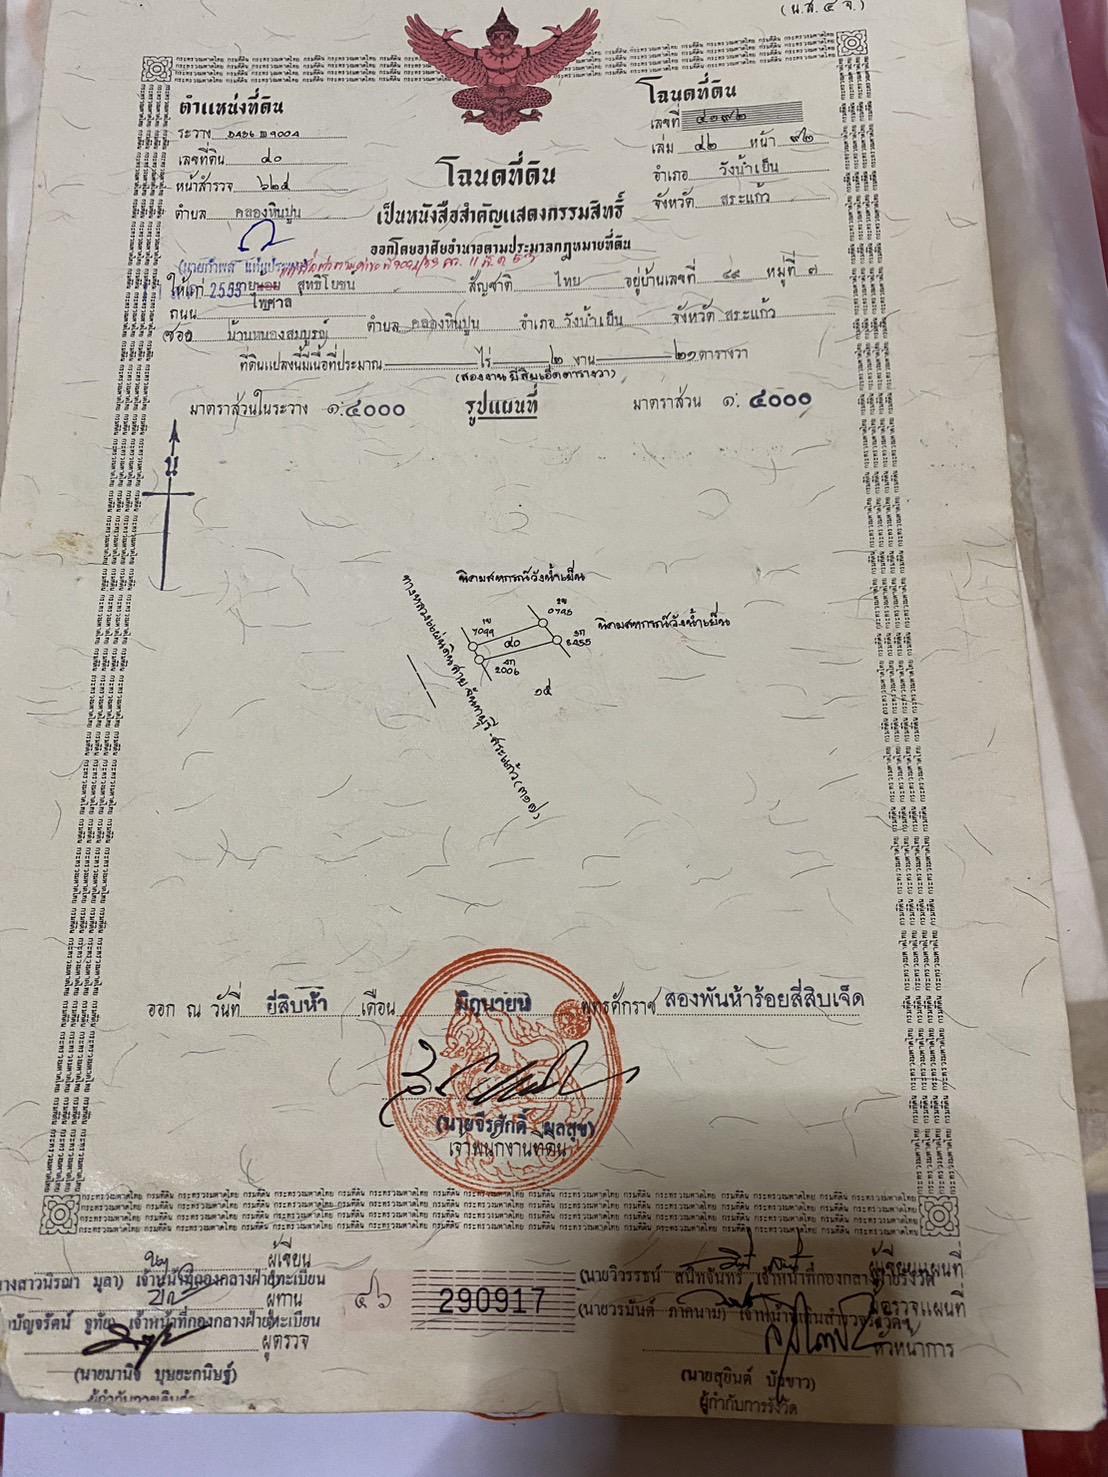 (น.ส.๔ จ.)
ตำแหน่งที่ดิน
ระวาง 5436 III 9004
เลขที่ดิน ๔๐
หน้าสำรวจ ๖๒๕
ตำบล คลองหินปูน
โฉนดที่ดิน
เลขที่ ๔๑๙๒
เล่ม ๔๒ หน้า ๙๒
อำเภอ วังน้ำเย็น
จังหวัด สระแก้ว
โฉนดที่ดิน
เป็นหนังสือสำคัญแสดงกรรมสิทธิ์
ออกโดยอาศัยอำนาจตามประมวลกฎหมายที่ดิน
ให้แก่ 2553 สุทธิโยชน สัญชาติ ไทย อยู่บ้านเลขที่ ๔๙ หมู่ที่ ๗
ถนน ไพศาล
ซอย บ้านหนองสมบูรณ์ ตำบล คลองหินปูน อำเภอ วังน้ำเย็น จังหวัด สระแก้ว
ที่ดินแปลงนี้มีเนื้อที่ประมาณ ไร่ ๒ งาน ๒๑ ตารางวา
(สองงานยี่สิบเอ็ดตารางวา)
มาตราส่วนในระวาง ๑:๔๐๐๐ รูปแผนที่ มาตราส่วน ๑:๔๐๐๐
น
นิคมสหกรณ์วังน้ำเย็น
นิคมสหกรณ์วังน้ำเย็น
๔๐
๑๕
ทางหลวงแผ่นดินสาย จันทบุรี-สระแก้ว (๓๑๗)
ออก ณ วันที่ ยี่สิบห้า เดือน มิถุนายน พุทธศักราช สองพันห้าร้อยสี่สิบเจ็ด
(นายจีรศักดิ์ มูลสุข)
เจ้าพนักงานที่ดิน
ผู้เขียน
างสาวนิรฌา มูลา) เจ้าหน้าที่กองกลางฝ่ายทะเบียน
ผู้ทาน
เจ้าหน้าที่กองกลางฝ่ายทะเบียน
ผู้ตรวจ
(นายมานิจ บุษยะกนิษฐ์)
๔๖ 290917
ผู้เขียนแผนที่
(นายวิวรรธน์ สนิทจันทร์) เจ้าหน้าที่กองกลางฝ่ายรังวัด
ผู้ตรวจแผนที่
หัวหน้าการ
(นายสุยินต์ บัวขาว)
ผู้กำกับการรังวัด